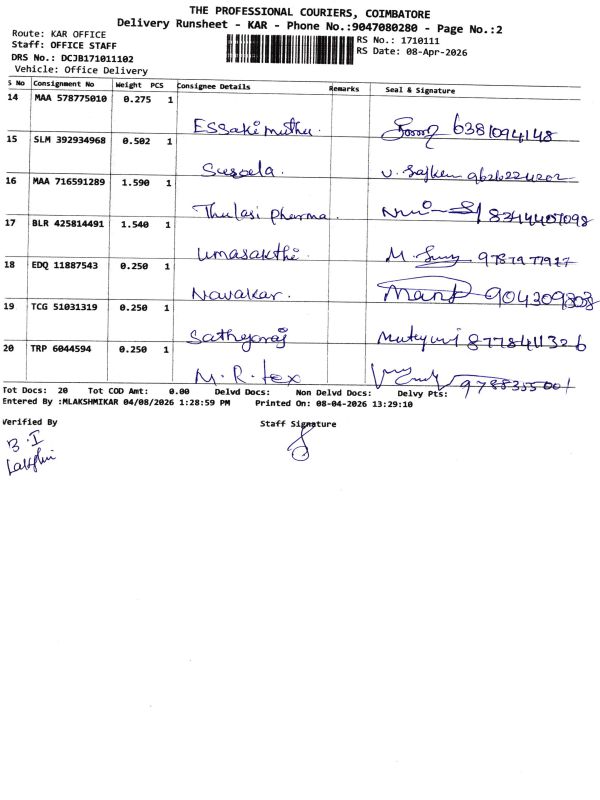 THE PROFESSIONAL COURIERS, COIMBATORE
Delivery Runsheet - KAR - Phone No.:9047080280 - Page No.:2
Route: KAR OFFICE
RS No.: 1710111
Staff: OFFICE STAFF
RS Date: 08-Apr-2026
DRS No.: DCJB171011102
Vehicle: Office Delivery
S No Consignment No Weight PCS Consignee Details Remarks Seal & Signature
14 MAA 578775010 0.275 1
Essaki muthu. 6381094148
15 SLM 392934968 0.502 1
Suseela.
16 MAA 716591289 1.590 1
Thulasi pharma.
17 BLR 425814491 1.540 1
Umasakthi.
18 EDQ 11887543 0.250 1
Navakar.
19 TCG 51031319 0.250 1
Sathyaraj
20 TRP 6044594 0.250 1
M.R.tex
Tot Docs: 20 Tot COD Amt: 0.00 Delvd Docs: Non Delvd Docs: Delvy Pts:
Entered By :MLAKSHMIKAR 04/08/2026 1:28:59 PM Printed On: 08-04-2026 13:29:10
Verified By Staff Signature